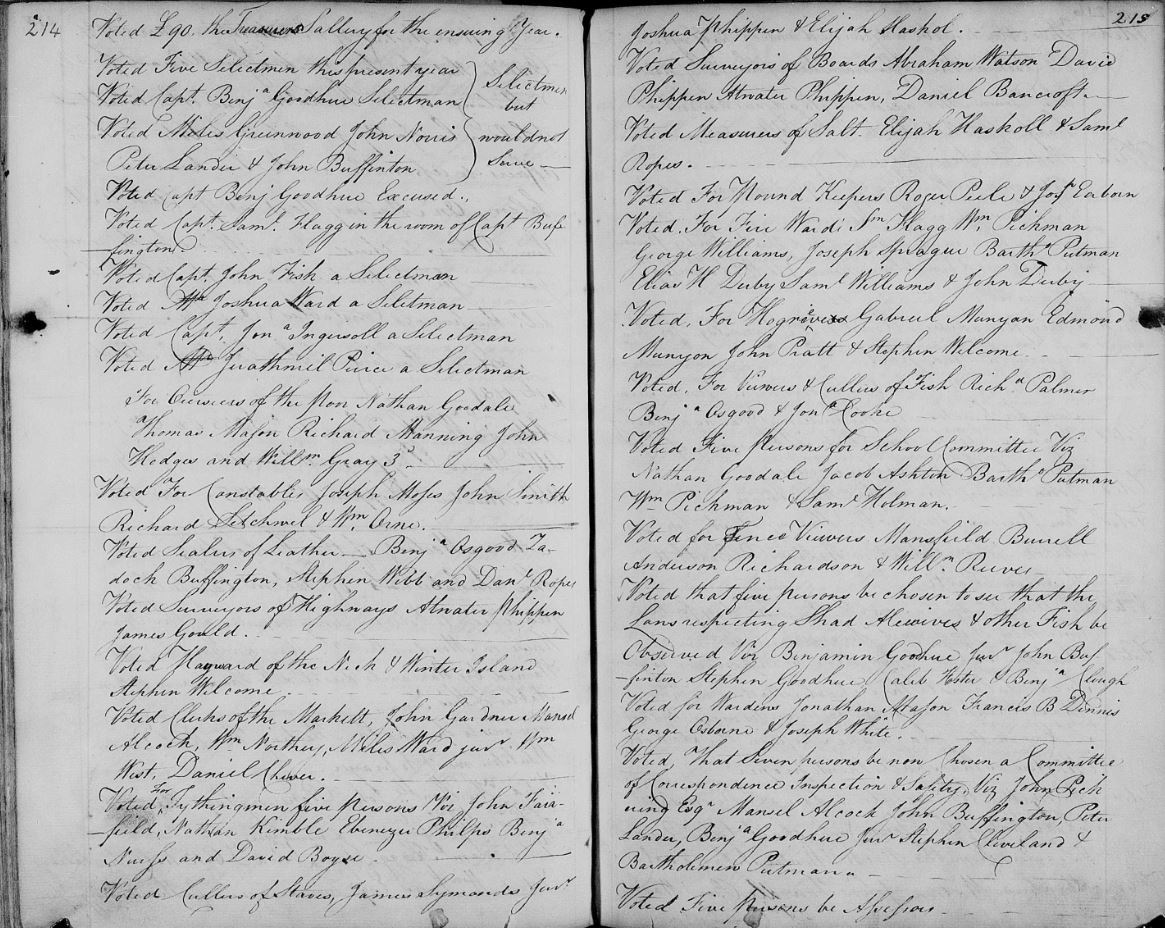 214
Voted £90. the Treasurers Sallery for the ensuing Year.
Voted Five Selectmen this present year
Voted Capt. Benja Goodhue Selectman
Selectmen
but
Voted Miles Greenwood John Norris
would not
Peter Lander & John Buffinton
Serve
Voted Capt Benj Goodhue Excused.
Voted Capt. Saml. Flagg in the room of Capt Buf
fington
Voted Capt. John Fisk a Selectman
Voted Joshua Ward a Seletman
Voted Capt. Jona Ingersoll a Selectman
Voted Jerathmiel Peirce a Selectman
For Overseers of the Poor Nathan Goodale
Thomas Mason Richard Manning John
Hodges and Willm. Gray 3d
Voted For Constables Joseph Moses John Smith
Richard & Wm. Orne.
Voted Sealers of Leather Benja Osgood Za-
dock Buffington, Stephen Webb and Danl Ropes
Voted Surveyors of Highways Atwater Phippen
James Gould.
Voted Hayward of the Neck & Winter Island
Stephen Welcome
Voted Clerks of the Markett, John Gardner Mansel
Alcock, Wm Northey, Miles Ward junr. Wm
West, Daniel Chever.
Voted For Tythingmen five persons Viz John Fair-
field, Nathan Kimble Ebenezer Philps Benja
and David Boyce
Voted Cullers of Staves, James Symonds Junr
215
Joshua Phippen & Elijah Haskol.
Voted Surveyors of Boards Abraham Watson David
Phippen Atwater Phippen, Daniel Bancroft
Voted Measurers of Salt Elijah Haskoll & Saml
Ropes.
Voted For Pound Keepers Roger Peele & Jos
Voted. For Fire Wards Sm Flagg Wm. Pickman
George Williams, Joseph Sprague Barthw Putman
Elias H Derby Saml Williams & John Derby
Voted. For Hogreves Gabriel Munyon Edmond
Munyon John Pratt & Stephen Welcome
Voted. For Viewers & Cullers of Fish Richd Palmer
Benja Osgood & Jona Cooke
Voted Five persons for School Committee Viz
Nathan Goodale Jacob Ashton Barthw Putman
Wm Pickman & Saml Holman.
Voted for Fence Viewers Mansfield Burrell
Anderson Richardson & Willm Reeves
Voted that five persons be chosen to see that the
Laws respecting Shad Alewives & other Fish be
Observed Viz Benjamin Goodhue junr John Buf
finton Stephen Goodhue Caleb Foster & Benja Clough
Voted for Wardens Jonathan Mason Francis B Dennis
George Osborne & Joseph White.
Voted, That Seven persons be now Chosen a Committee
of Correspondence Inspection & Safety, Viz John Pick
ering Esqr Mansel Alcock John Buffington, Peter
Lander, Benja Goodhue Junr Stephen Cleveland &
Bartholemew Putman
Voted Five persons be Assessors